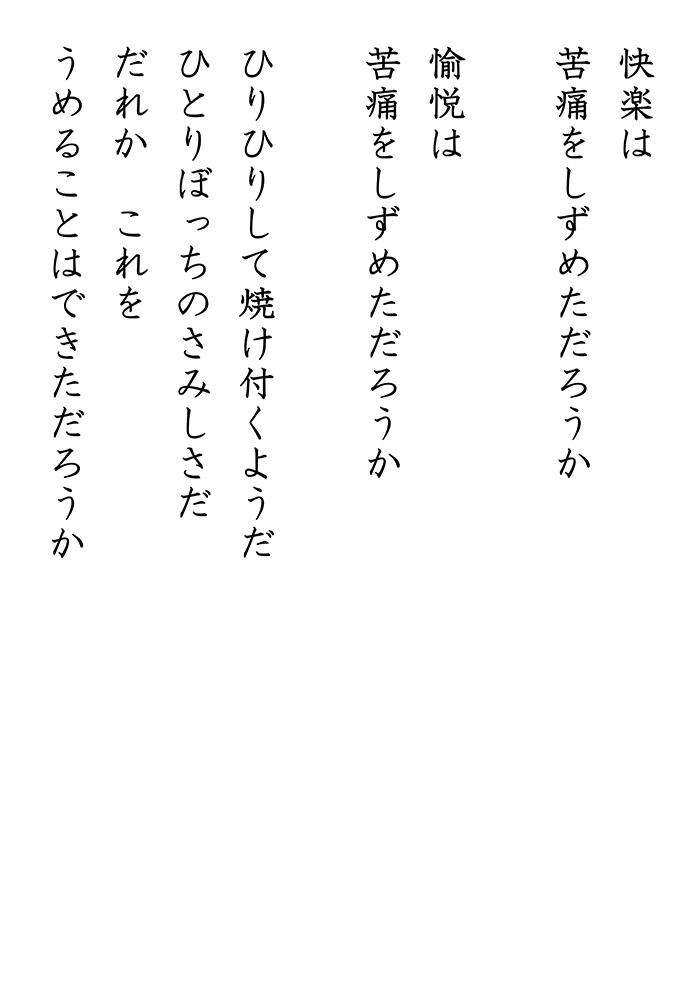 快楽は
苦痛をしずめただろうか
愉悦は
苦痛をしずめただろうか
ひりひりして焼け付くようだ
ひとりぼっちのさみしさだ
だれか　これを
うめることはできただろうか